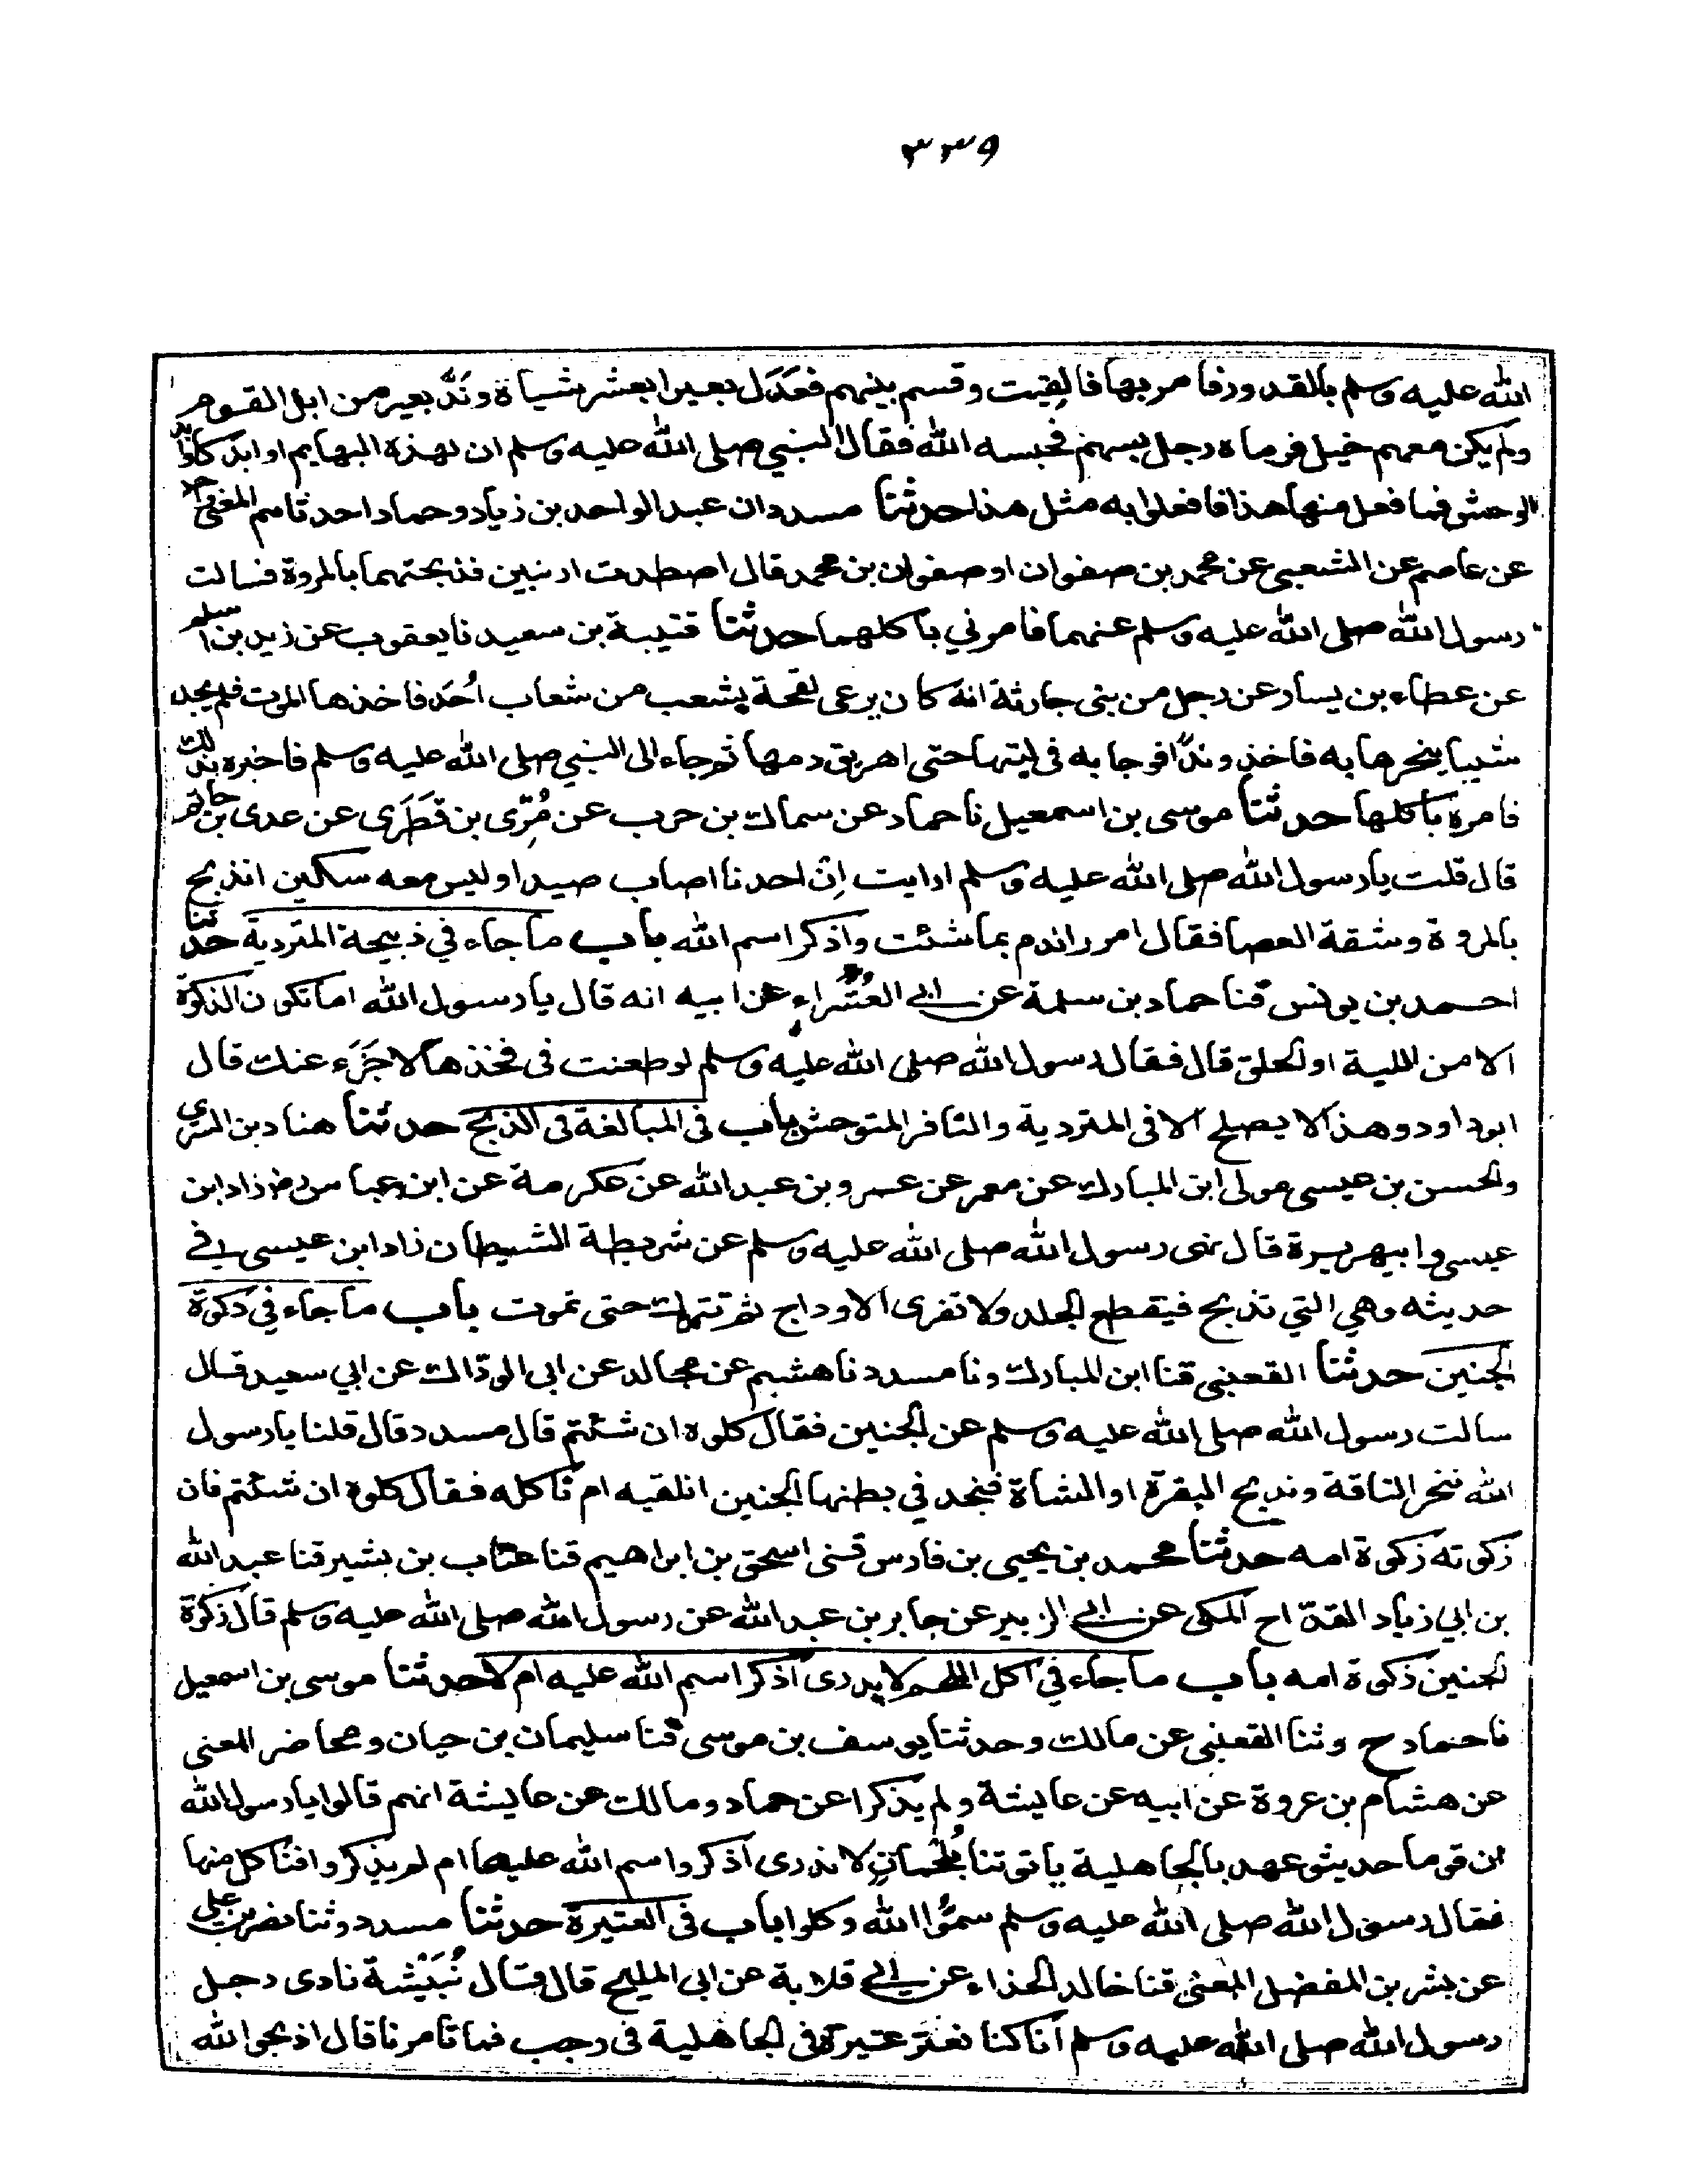 ٣٣٩
الله عليه وسلم بالقدور فامر بها فالقِيت وقسم بينهم فعَدَل بعيرا بعشر شياة وندَّ بعير من ابل القوم
ولم يكن معهم خيل فرماه رجل بسهم فحبسه الله فقال النبي صلى الله عليه وسلم ان لهذه البهايم اوابد كاوابد
الوحش فما فعل منها هذا فافعلوا به مثل هذا حدثنا مسدد ان عبد الواحد بن زياد وحماد احدثاهم المعنى واحد
عن عاصم عن الشعبي عن محمد بن صفوان او صفوان بن محمد قال اصطدت ارنبين فذبحتهما بالمروة فسالت
رسول الله صلى الله عليه وسلم عنهما فامرني باكلهما حدثنا قتيبة بن سعيد نا يعقوب عن زيد بن اسلم
عن عطاء بن يسار عن رجل من بنى حارثة انه كان يرعى لقحة بشعب من شعاب اُحَد فاخذها الموت فلم يجد
شيبا ينحرها به فاخذ وتدًا فوجا به فى لبتها حتى اهريق دمها ثم جاء الى النبي صلى الله عليه وسلم فاخبره بذلك
فامره باكلها حدثنا موسى بن اسمعيل نا حماد عن سماك بن حرب عن مُرِّى بن قَطَرَى عن عدى بن حاتم
قال قلت يا رسول الله صلى الله عليه وسلم ارايت اِن احدنا اصاب صيدا وليس معه سكين انذبح
بالمروة وشقة العصا فقال امرر الدم بما شئت واذكر اسم الله باب ما جاء في ذبيحة المتردية حدثنا
احمد بن يونس قثنا حماد بن سلمة عن ابي العُشَراء عن ابيه انه قال يا رسول الله اما تكون الذكوة
الا من اللبة او الحلق قال فقال رسول الله صلى الله عليه وسلم لو طعنت فى فخذها لاجزَء عنك قال
ابو داود وهذا لا يصلح الا فى المتردية والنافر المتوحش باب فى المبالغة فى الذبح حدثنا هناد بن السري
والحسن بن عيسى مولى ابن المبارك عن معمر عن عمرو بن عبد الله عن عكرمة عن ابن عباس رض زاد ابن
عيسى وابيهريرة قال نهى رسول الله صلى الله عليه وسلم عن شريطة الشيطان زاد ابن عيسى في
حديثه وهي التي تذبح فيقطع الجلد ولا تفرى الاوداج ثم تترك حتى تموت باب ما جاء في ذكوة
الجنين حدثنا القعنبى قثنا ابن المبارك ونا مسدد نا هشيم عن مجالد عن ابى الودّاك عن ابي سعيد قال
سالت رسول الله صلى الله عليه وسلم عن الجنين فقال كلوه ان شئتم قال مسدد قال قلنا يا رسول
الله ننحر الناقة ونذبح البقرة او الشاة فنجد في بطنها الجنين انلقيه ام ناكله فقال كلوه ان شئتم فان
زكوته زكوة امه حدثنا محمد بن يحيى بن فارس قثنى اسحق بن ابراهيم قثنا عتاب بن بشير قثنا عبد الله
بن ابي زياد القدّاح المكى عن ابي الزبير عن جابر بن عبد الله عن رسول الله صلى الله عليه وسلم قال ذكوة
الجنين ذكوة امه باب ما جاء في اكل اللحم لا يدرى اذكر اسم الله عليه ام لا حدثنا موسى بن اسمعيل
نا حماد ح وثنا القعنبى عن مالك وحدثنا يوسف بن موسى قثنا سليمان بن حيان ومحاضر المعنى
عن هشام بن عروة عن ابيه عن عايشة ولم يذكرا عن حماد ومالك عن عايشة انهم قالوا يا رسول الله
ان قوما حديثو عهد بالجاهلية ياتوتنا بلُحْمانٍ لا ندرى اذكروا اسم الله عليها ام لم يذكروا افناكل منها
فقال رسول الله صلى الله عليه وسلم سمُّوا الله وكلوا باب فى العتيرة حدثنا مسدد وثنا نصر بن علي
عن بشر بن المفضل المعنى قثنا خالد الحذاء عن ابي قلابة عن ابى المليح قال قال نُبَيْشة نادى رجل
رسول الله صلى الله عليه وسلم انا كنا نعتر عتيرة فى الجاهلية فى رجب فما تامرنا قال اذبحوا لله